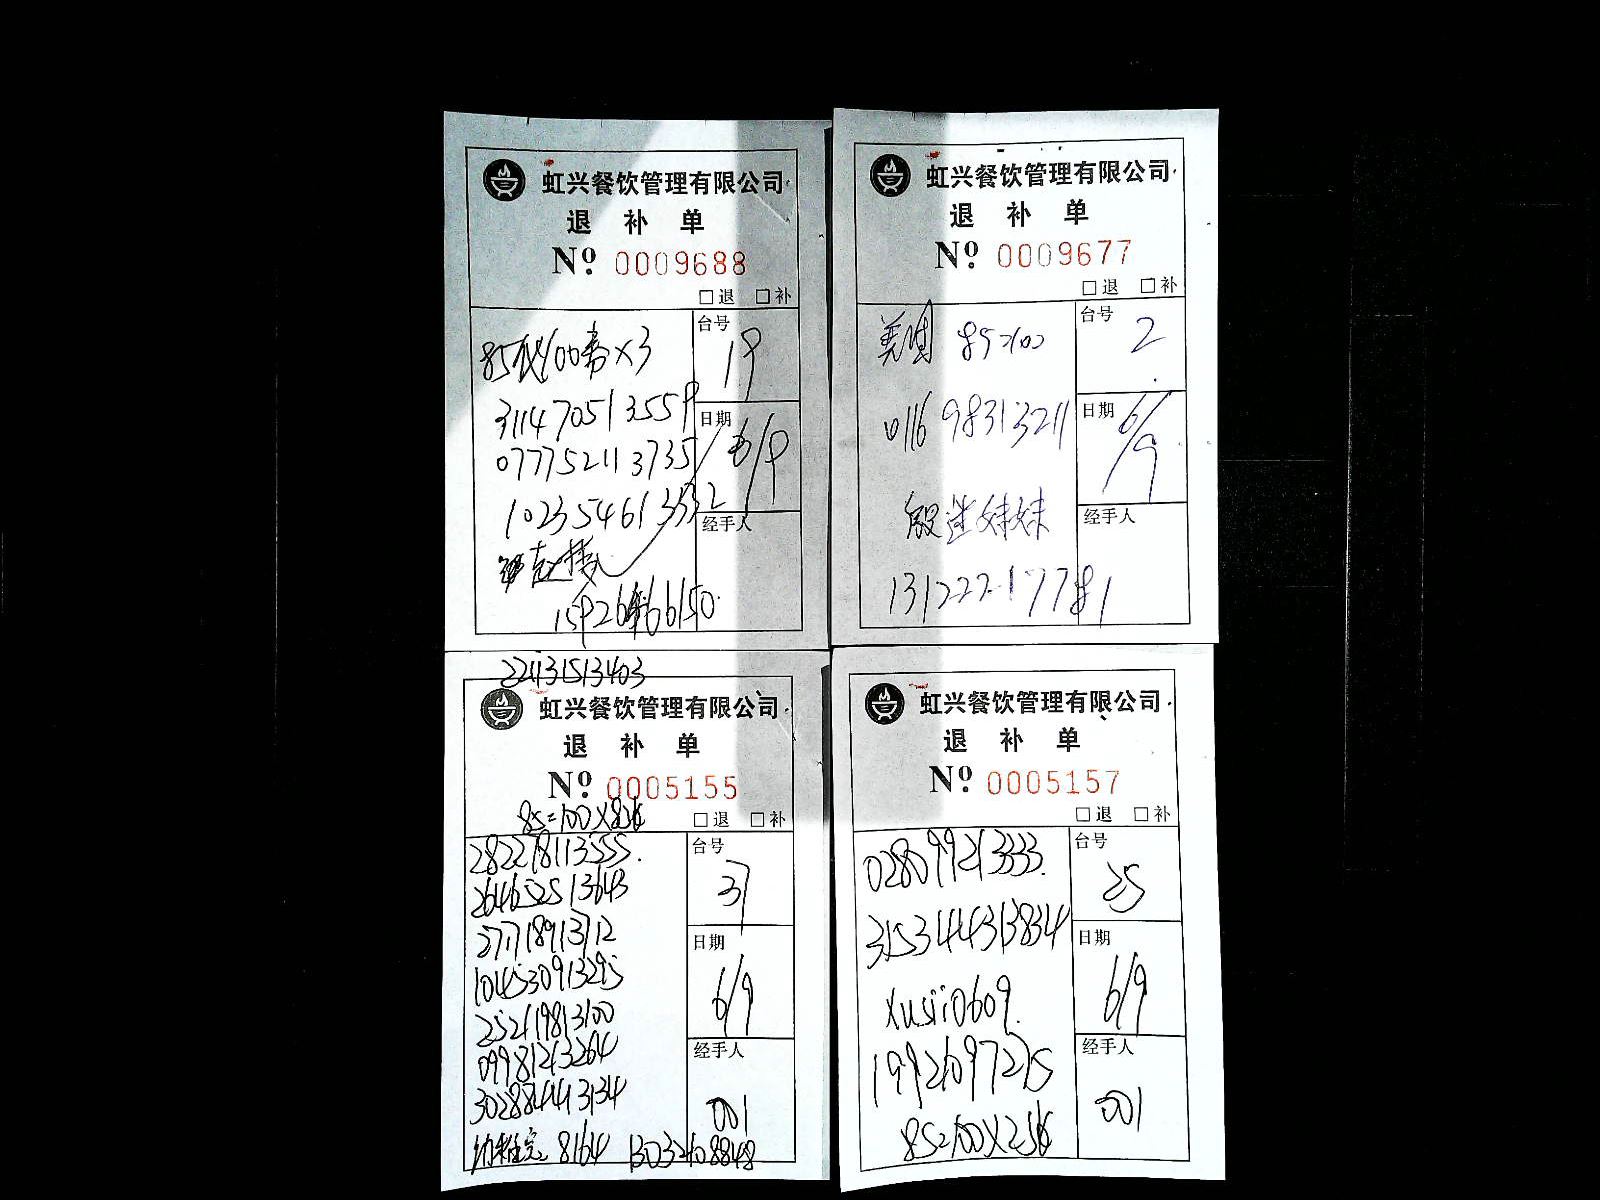 虹兴餐饮管理有限公司
退 补 单
Nº 0009688
□退 □补
85代100券×3
台号
19
311470513559
日期
6/9
077752113735
102354613332
经手人
虹兴餐饮管理有限公司
退 补 单
Nº 0009677
□退 □补
美团 85=100
台号
2
011698313211
日期
6/9
殷送妹妹
经手人
13122217781
221131513403
虹兴餐饮管理有限公司
退 补 单
Nº 0005155
85=100×8张
□退 □补
282278113555
台号
37
264652513643
277189113112
日期
6/9
104530913295
252119813100
099812143264
经手人
302884413134
001
8164 13032108848
虹兴餐饮管理有限公司
退 补 单
Nº 0005157
□退 □补
028099213333
台号
25
315344313834
日期
6/9
xusii0609
19921097275
经手人
001
85=100×2张